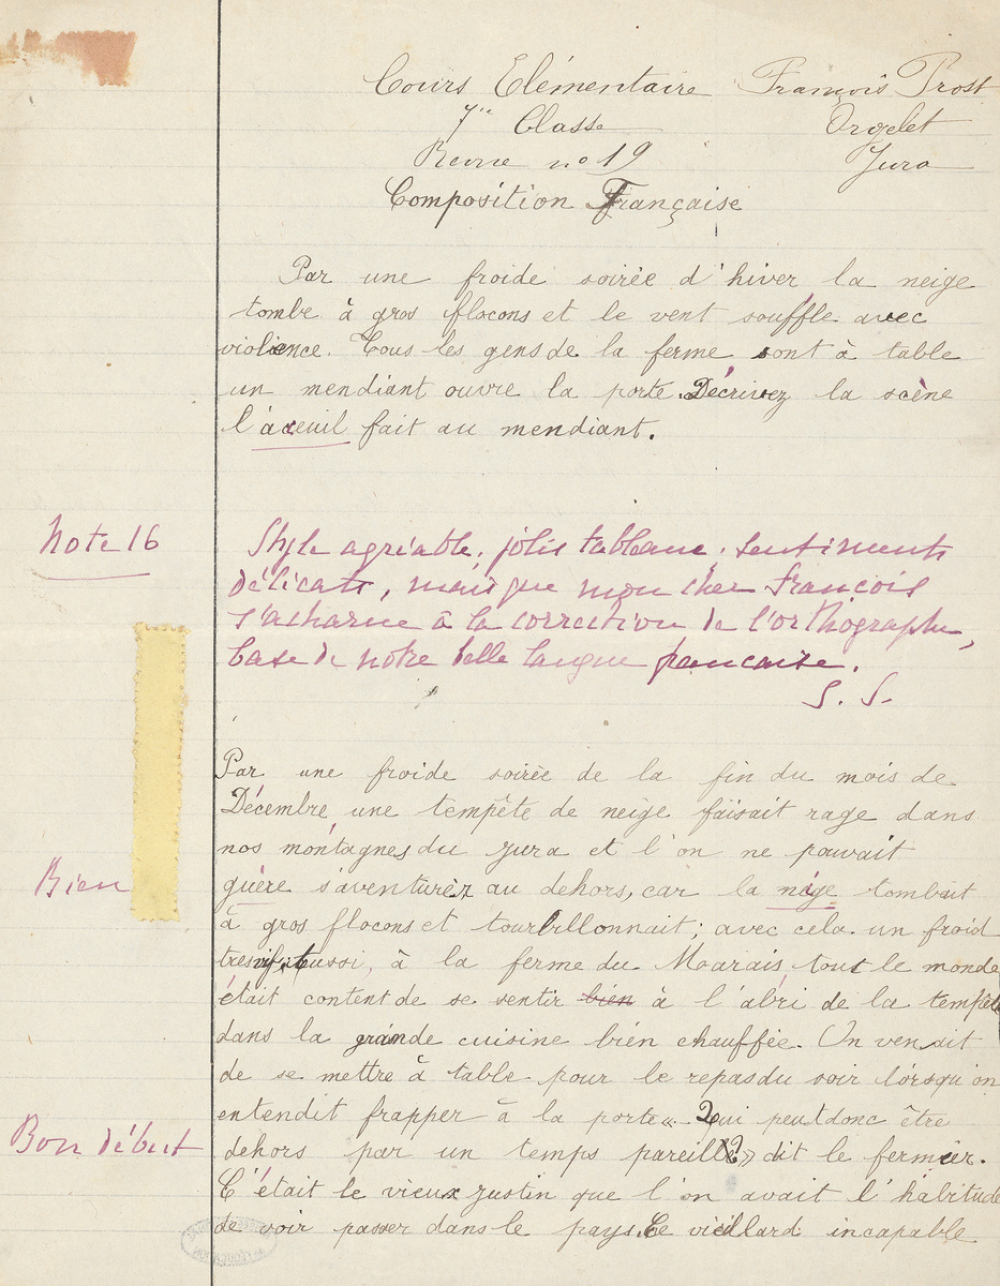 Cours Elémentaire François Prost
7ᵐᵉ Classe Orgelet
Revue no 19 Jura
Composition Française
Par une froide soirée d'hiver la neige
tombe à gros flocons et le vent souffle avec
violence. Tous les gens de la ferme sont à table
un mendiant ouvre la porte. Décrivez la scène
l'aceuil fait au mendiant.
Note 16
Style agréable, jolis tableaux, sentiments
délicats, mais que mon cher François
s'acharne à la correction de l'orthographe,
base de notre belle langue française.
S. S.
Par une froide soirée de la fin du mois de
Décembre une tempête de neige faisait rage dans
nos montagnes du jura et l'on ne pouvait
Bien
guère s'aventurer au dehors, car la nége tombait
à gros flocons et tourbillonnait; avec cela un froid
très vif, aussi, à la ferme du Moarais, tout le monde
était content de se sentir bien à l'abri de la tempête
dans la grande cuisine bien chauffée. On venait
de se mettre à table pour le repas du soir lorsqu'on
entendit frapper à la porte «- Qui peut donc être
Bon début
dehors par un temps pareil?» dit le fermier.
C'était le vieux justin que l'on avait l'habitude
de voir passer dans le pays. Ce vieillard incapable